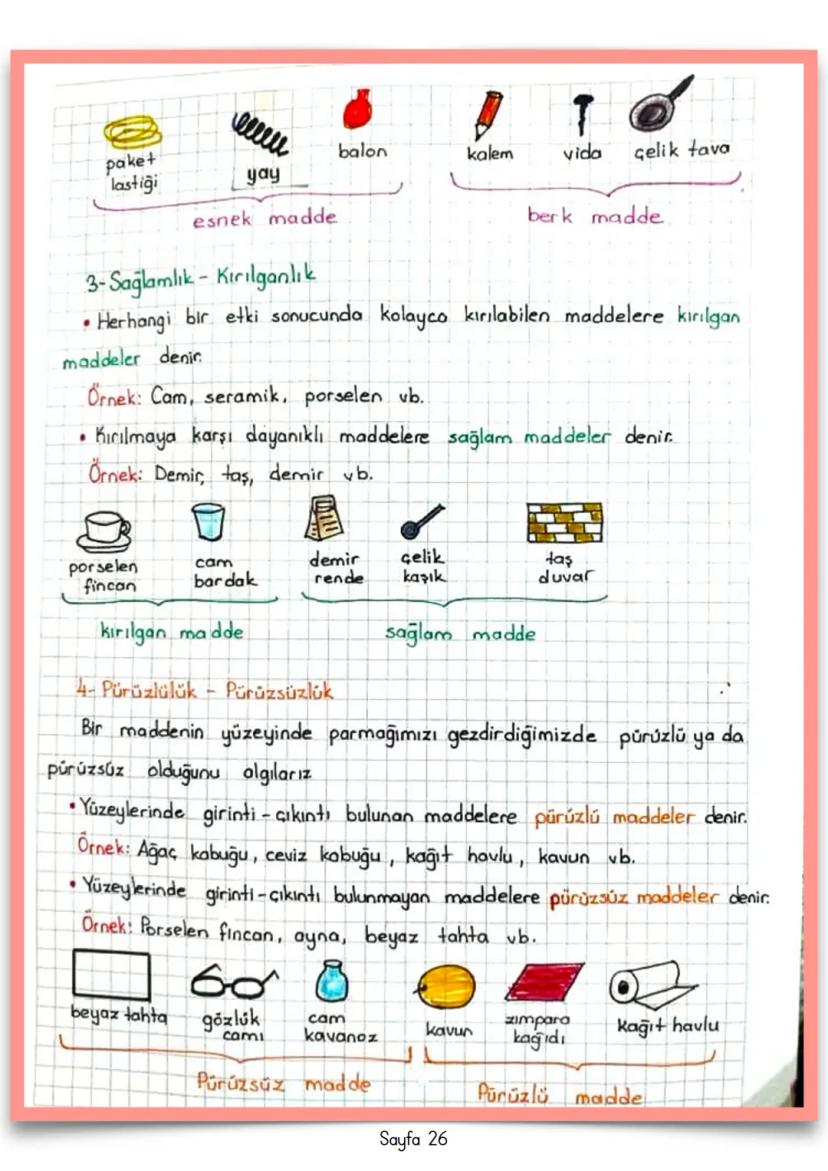 paket
lastiği
yay
balon
kalem
vida
çelik tava
esnek madde
berk madde
3- Sağlamlık - Kırılganlık
• Herhangi bir etki sonucunda kolayca kırılabilen maddelere kırılgan
maddeler denir.
Örnek: Cam, seramik, porselen vb.
• Kırılmaya karşı dayanıklı maddelere sağlam maddeler denir.
Örnek: Demir, taş, demir vb.
porselen
fincan
cam
bardak
demir
rende
çelik
kaşık
taş
duvar
kırılgan madde
sağlam madde
4- Pürüzlülük - Pürüzsüzlük
Bir maddenin yüzeyinde parmağımızı gezdirdiğimizde pürüzlü ya da
pürüzsüz olduğunu algılarız
• Yüzeylerinde girinti - çıkıntı bulunan maddelere pürüzlü maddeler denir.
Örnek: Ağaç kabuğu, ceviz kabuğu, kağıt havlu, kavun vb.
• Yüzeylerinde girinti-çıkıntı bulunmayan maddelere pürüzsüz maddeler denir.
Örnek: Porselen fincan, ayna, beyaz tahta vb.
beyaz tahta
gözlük
camı
cam
kavanoz
kavun
zımpara
kağıdı
kağıt havlu
Pürüzsüz madde
Pürüzlü madde
Sayfa 26